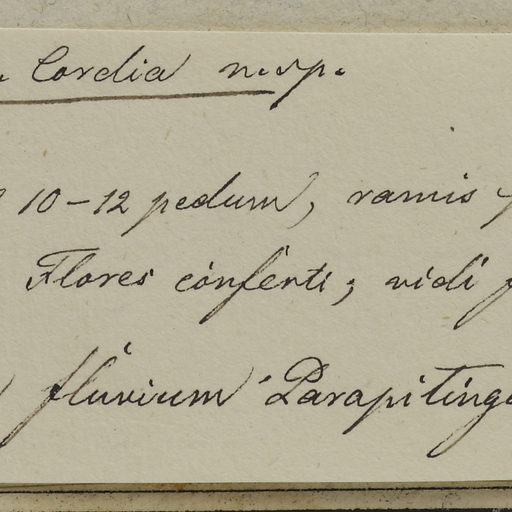 Cordia n. sp.
10-12 pedum, ramis
Flores conferti; vidi
fluvium Parapitinga